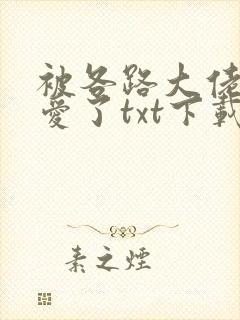 被各路大佬
愛了txt下載
素之煙